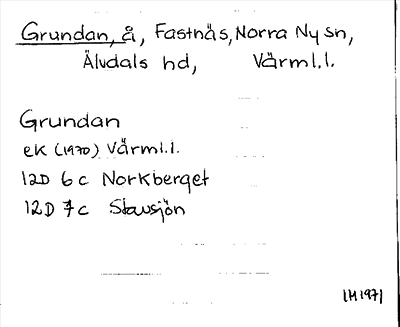 Grundan, å, Fastnäs, Norra Ny sn,
Älvdals hd, Värml.l.
Grundan
eK (1970) Värml.l.
12D 6c Norkberget
12D 7c Stavsjön
IM 1971